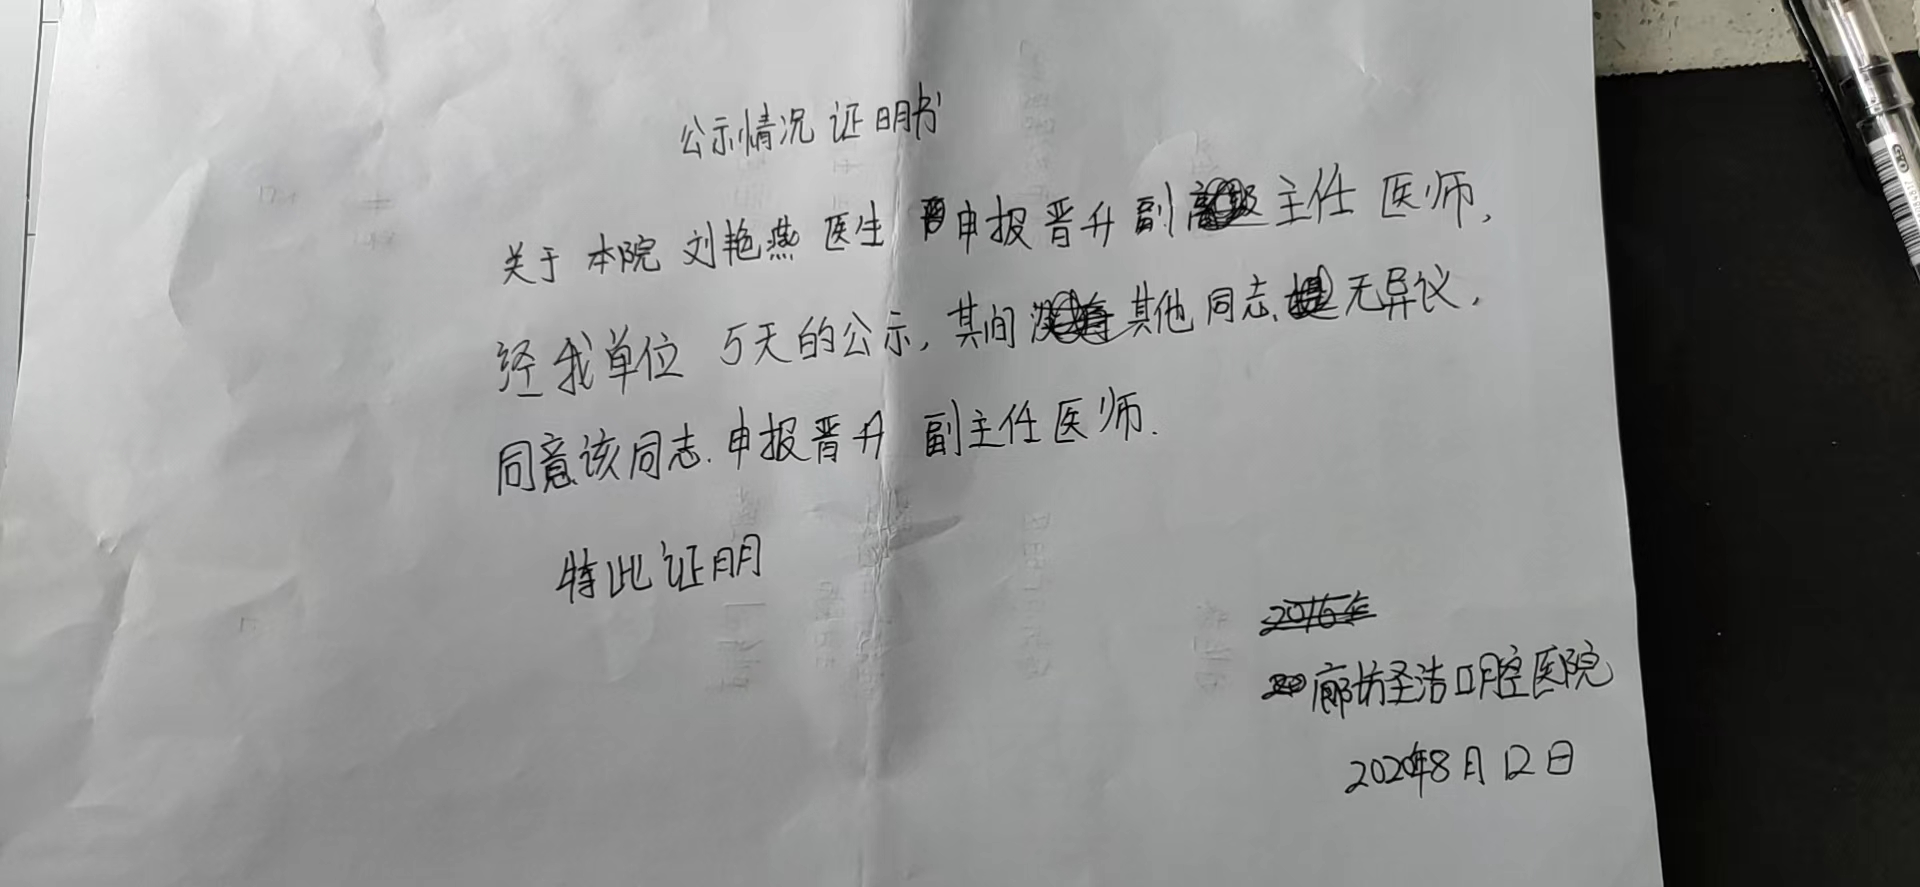 公示情况证明书
关于本院刘艳燕医生申报晋升副主任医师,
经我单位5天的公示,其间其他同志无异议,
同意该同志申报晋升副主任医师.
特此证明
2016年
廊坊圣洁口腔医院
2020年8月12日